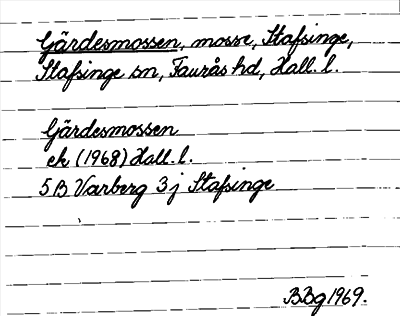 Gärdesmossen, mosse, Stafsinge,
Stafsinge sn, Faurås hd, Hall. l.
Gärdesmossen
ek (1968) Hall. l.
5B Varberg 3j Stafsinge
BBg 1969.